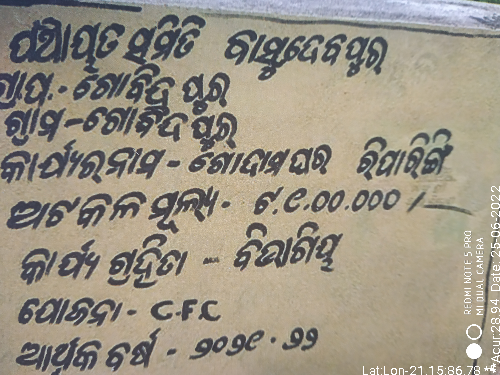 ପଞ୍ଚାୟତ ସମିତି ବାସୁଦେବପୁର
ଗ୍ରା.ପ.- ଗୋବିନ୍ଦପୁର
ଗ୍ରାମ - ଗୋବିନ୍ଦପୁର
କାର୍ଯ୍ୟର ନାମ - ଗୋଦାମଘର ରିପାରିଙ୍ଗ
ଅଟକିଳ ମୂଲ୍ୟ - ଟ.୧.୦୦.୦୦୦/-
କାର୍ଯ୍ୟ ଗ୍ରହିତା - ବିଭାଗିୟ
ଯୋଜନା - C.F.C
ଆର୍ଥିକ ବର୍ଷ - ୨୦୨୧.୨୨
REDMI NOTE 5 PRO
MI DUAL CAMERA
Date: 25-06-2022
Lat:Lon-21.15:86.78